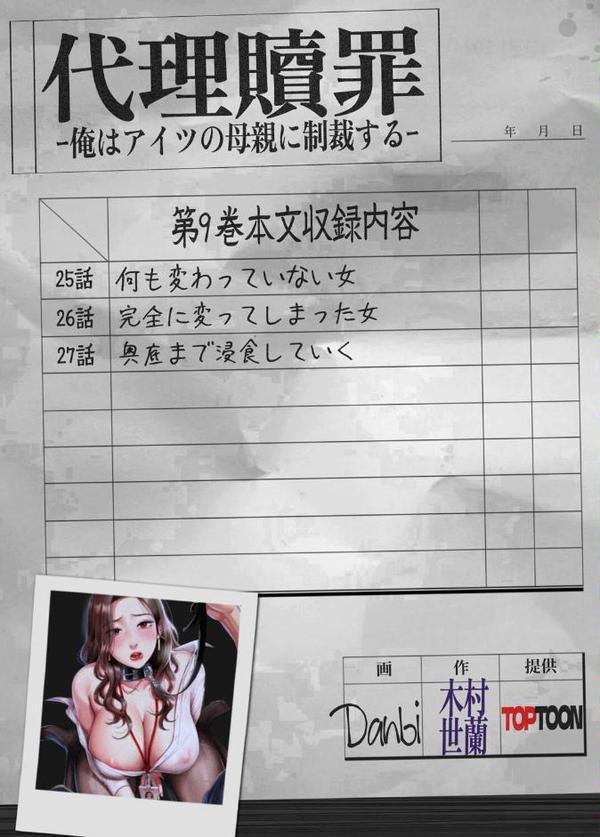 代理贖罪
-俺はアイツの母親に制裁する-
年 月 日
第9巻本文収録内容
25話 何も変わっていない女
26話 完全に変ってしまった女
27話 奥底まで浸食していく
画 作 提供
Danbi 木村世蘭 TOPTOON